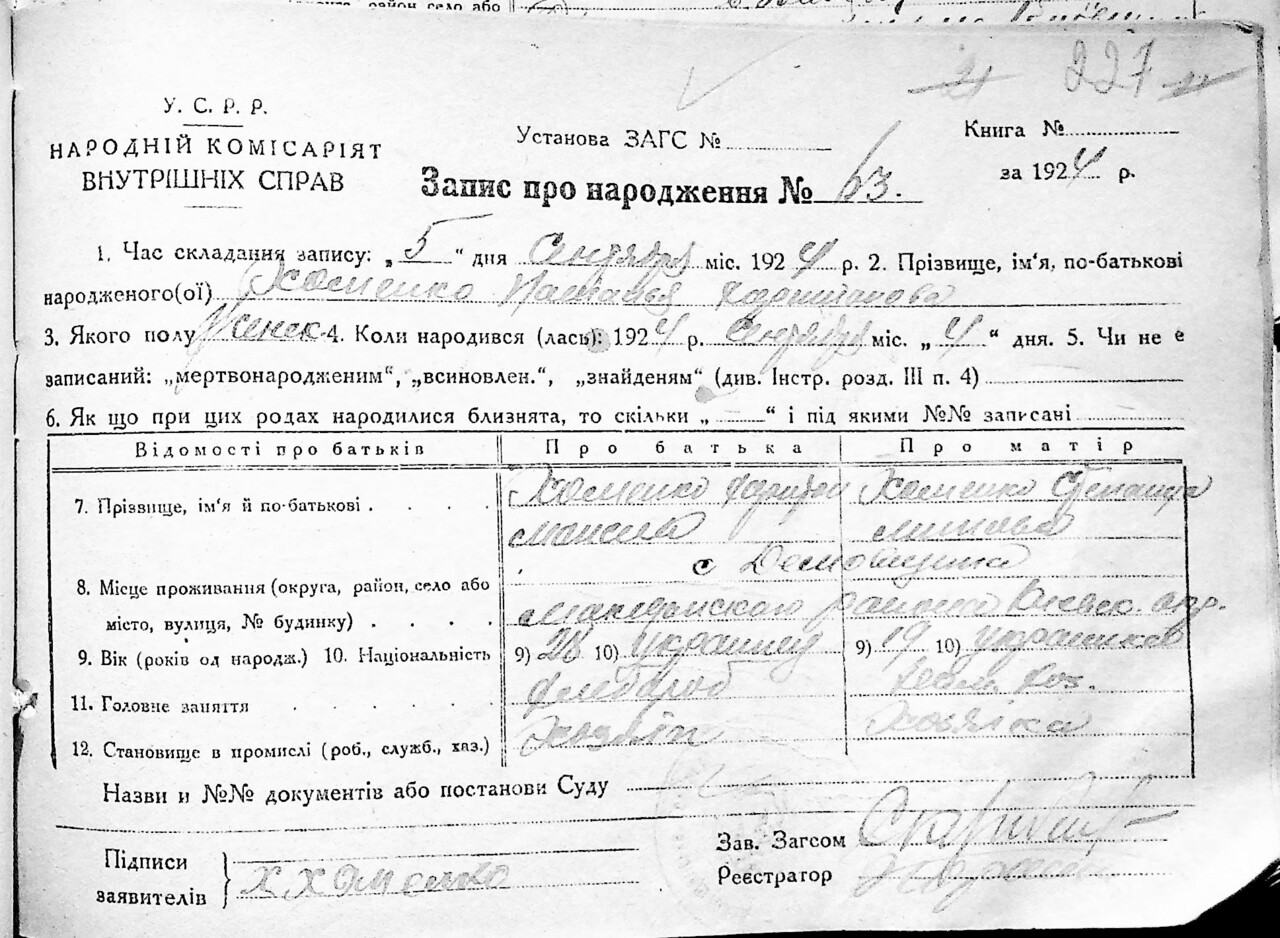 район село або
227
У. С. Р. Р.
НАРОДНІЙ КОМІСАРІЯТ
ВНУТРІШНІХ СПРАВ
Установа ЗАГС №
Книга №
за 1924 р.
Запис про народження № 63.
1. Час складання запису: „ 5 “ дня Сентября міс. 1924 р. 2. Прізвище, ім‘я, по-батькові
народженого(ої) Хоменко Наталья Харитонова
3. Якого полу Женск 4. Коли народився (лась): 1924 р. Сентября міс. „ 4 “ дня. 5. Чи не є
записаний: „мертвонародженим“, „всиновлен.“, „знайденям“ (див. Інстр. розд. III п. 4)
6. Як що при цих родах народилися близнята, то скільки „ “ і під якими №№ записані
Відомості про батьків Про батька Про матір
7. Прізвище, ім‘я й по-батькові . . . . Хоменко Харитон Хоменко Степанида
с Демовщина
8. Місце проживання (округа, район, село або
місто, вулиця, № будинку) . . . . района Киевск. окр.
9. Вік (років од народж.) 10. Національність 9) 26 10) украинец 9) 19 10)
11. Головне заняття . . . . хлебороб
12. Становище в промислі (роб., служб., хаз.) Хозяїн Хозяйка
Назви и №№ документів або постанови Суду
Зав. Загсом
Підписи
заявителів
Х Хоменко
Реєстратор